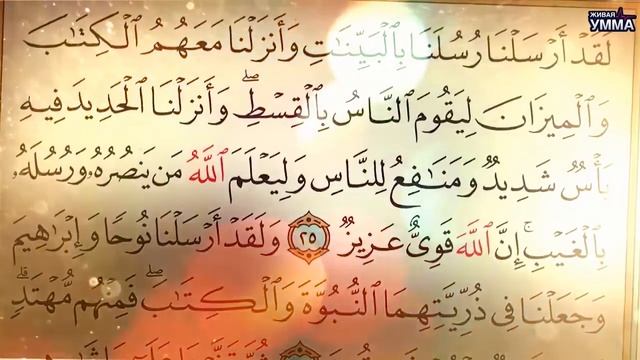 ЖИВАЯ
УММА
لَقَدۡ أَرۡسَلۡنَا رُسُلَنَا بِٱلۡبَيِّنَٰتِ وَأَنزَلۡنَا مَعَهُمُ ٱلۡكِتَٰبَ
وَٱلۡمِيزَانَ لِيَقُومَ ٱلنَّاسُ بِٱلۡقِسۡطِۖ وَأَنزَلۡنَا ٱلۡحَدِيدَ فِيهِ
بَأۡسٞ شَدِيدٞ وَمَنَٰفِعُ لِلنَّاسِ وَلِيَعۡلَمَ ٱللَّهُ مَن يَنصُرُهُۥ وَرُسُلَهُۥ
بِٱلۡغَيۡبِۚ إِنَّ ٱللَّهَ قَوِيٌّ عَزِيزٞ ٢٥ وَلَقَدۡ أَرۡسَلۡنَا نُوحٗا وَإِبۡرَٰهِيمَ
وَجَعَلۡنَا فِي ذُرِّيَّتِهِمَا ٱلنُّبُوَّةَ وَٱلۡكِتَٰبَۖ فَمِنۡهُم مُّهۡتَدٖۖ